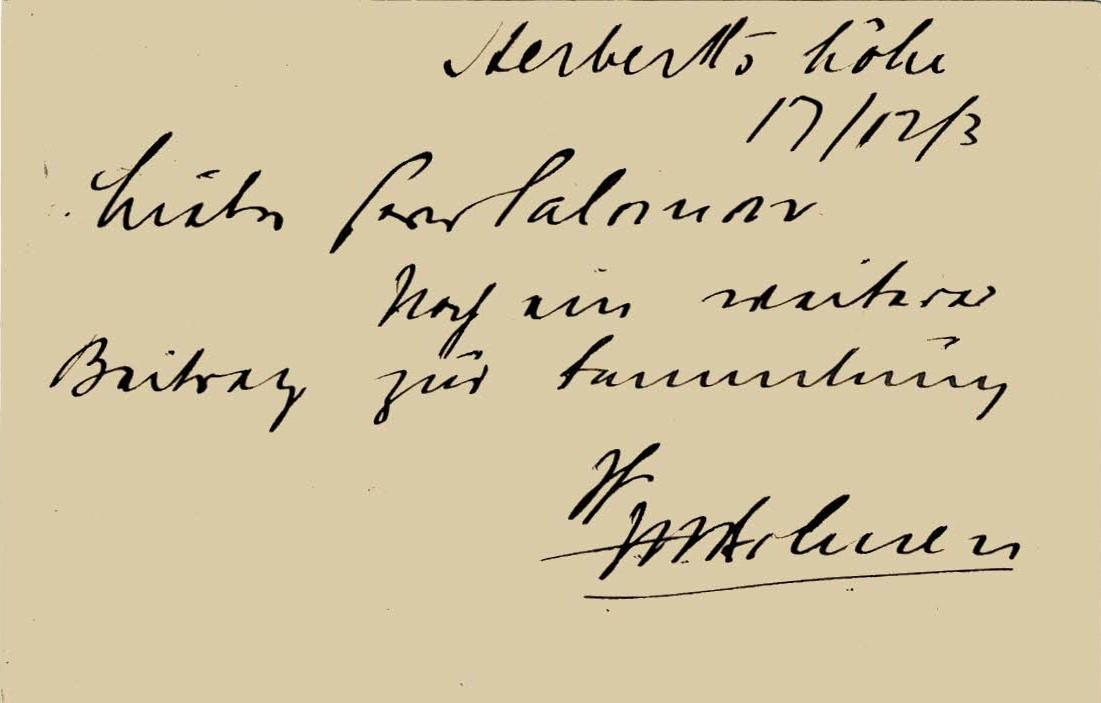 Herbertshöhe
17/12/3
Lieber Herr Salomon
Noch ein weiterer
Beitrag zur Sammlung